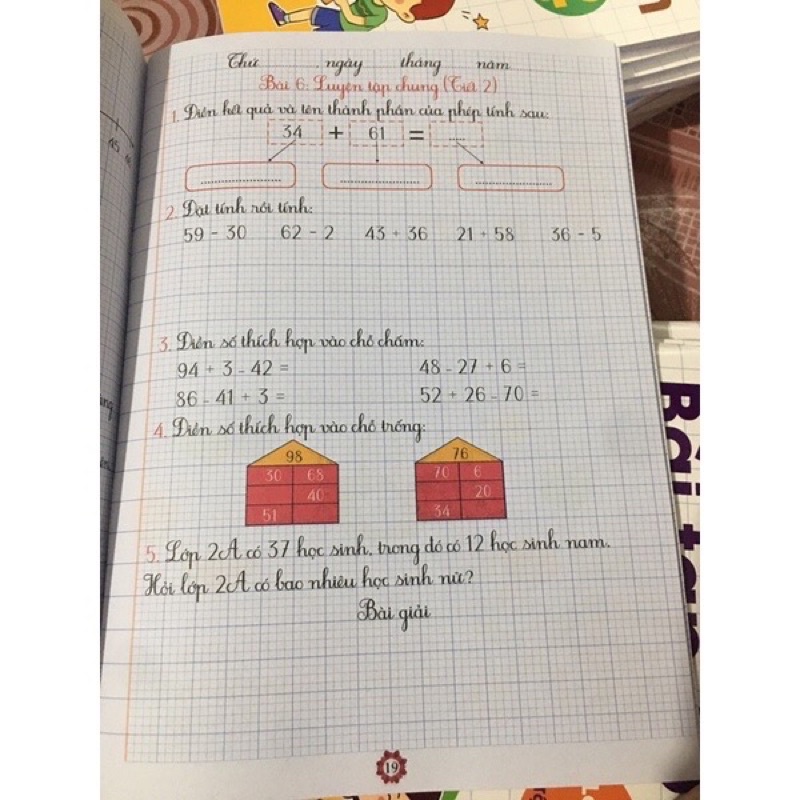 Thứ ngày tháng năm
Bài 6: Luyện tập chung (Tiết 2)
1. Điền kết quả và tên thành phần của phép tính sau:
34 + 61 = .....
...................... ...................... ......................
2. Đặt tính rồi tính:
59 - 30 62 - 2 43 + 36 21 + 58 36 - 5
3. Điền số thích hợp vào chỗ chấm:
94 + 3 - 42 = 48 - 27 + 6 =
86 - 41 + 3 = 52 + 26 - 70 =
4. Điền số thích hợp vào chỗ trống:
98 76
30 68 70 6
40 20
51 34
5. Lớp 2A có 37 học sinh, trong đó có 12 học sinh nam.
Hỏi lớp 2A có bao nhiêu học sinh nữ?
Bài giải
19
Bài tập